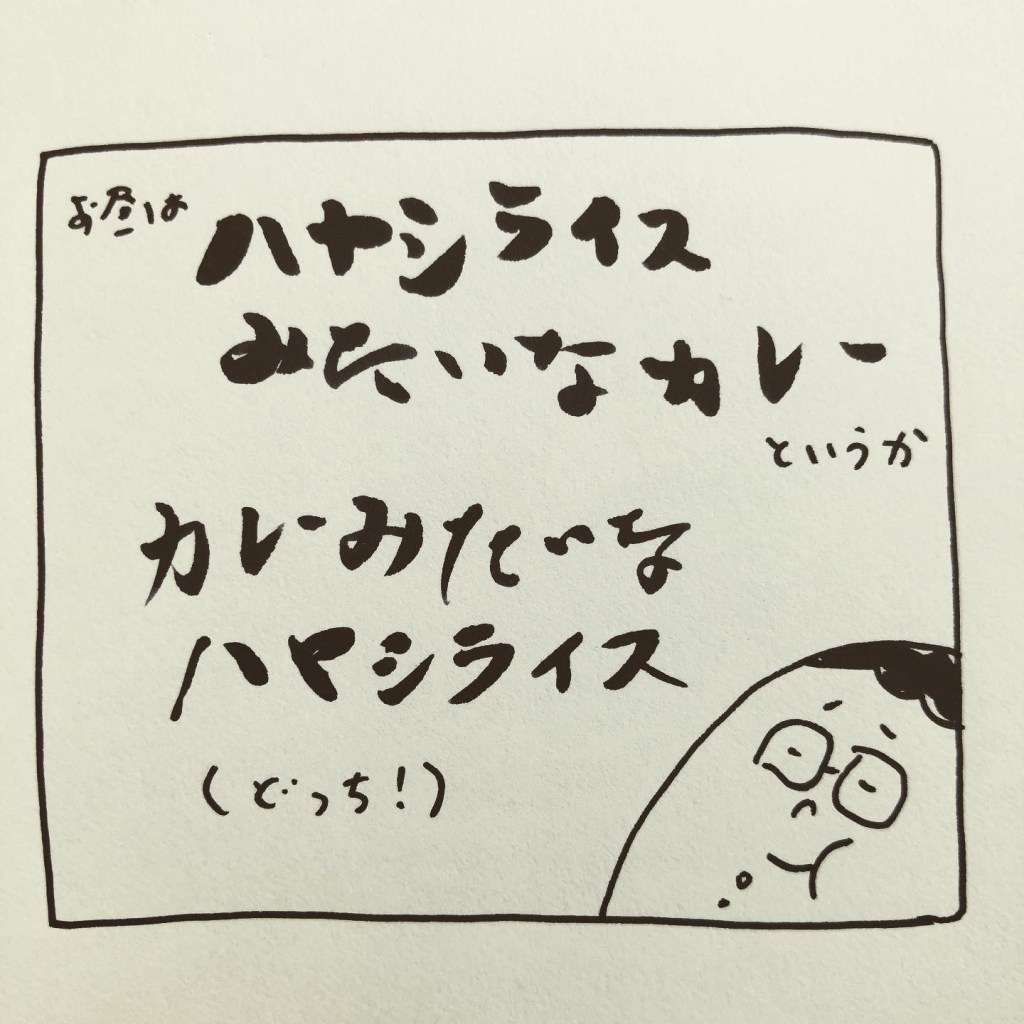 お昼は ハヤシライス
みたいなカレー
というか
カレーみたいな
ハヤシライス
（どっち！）